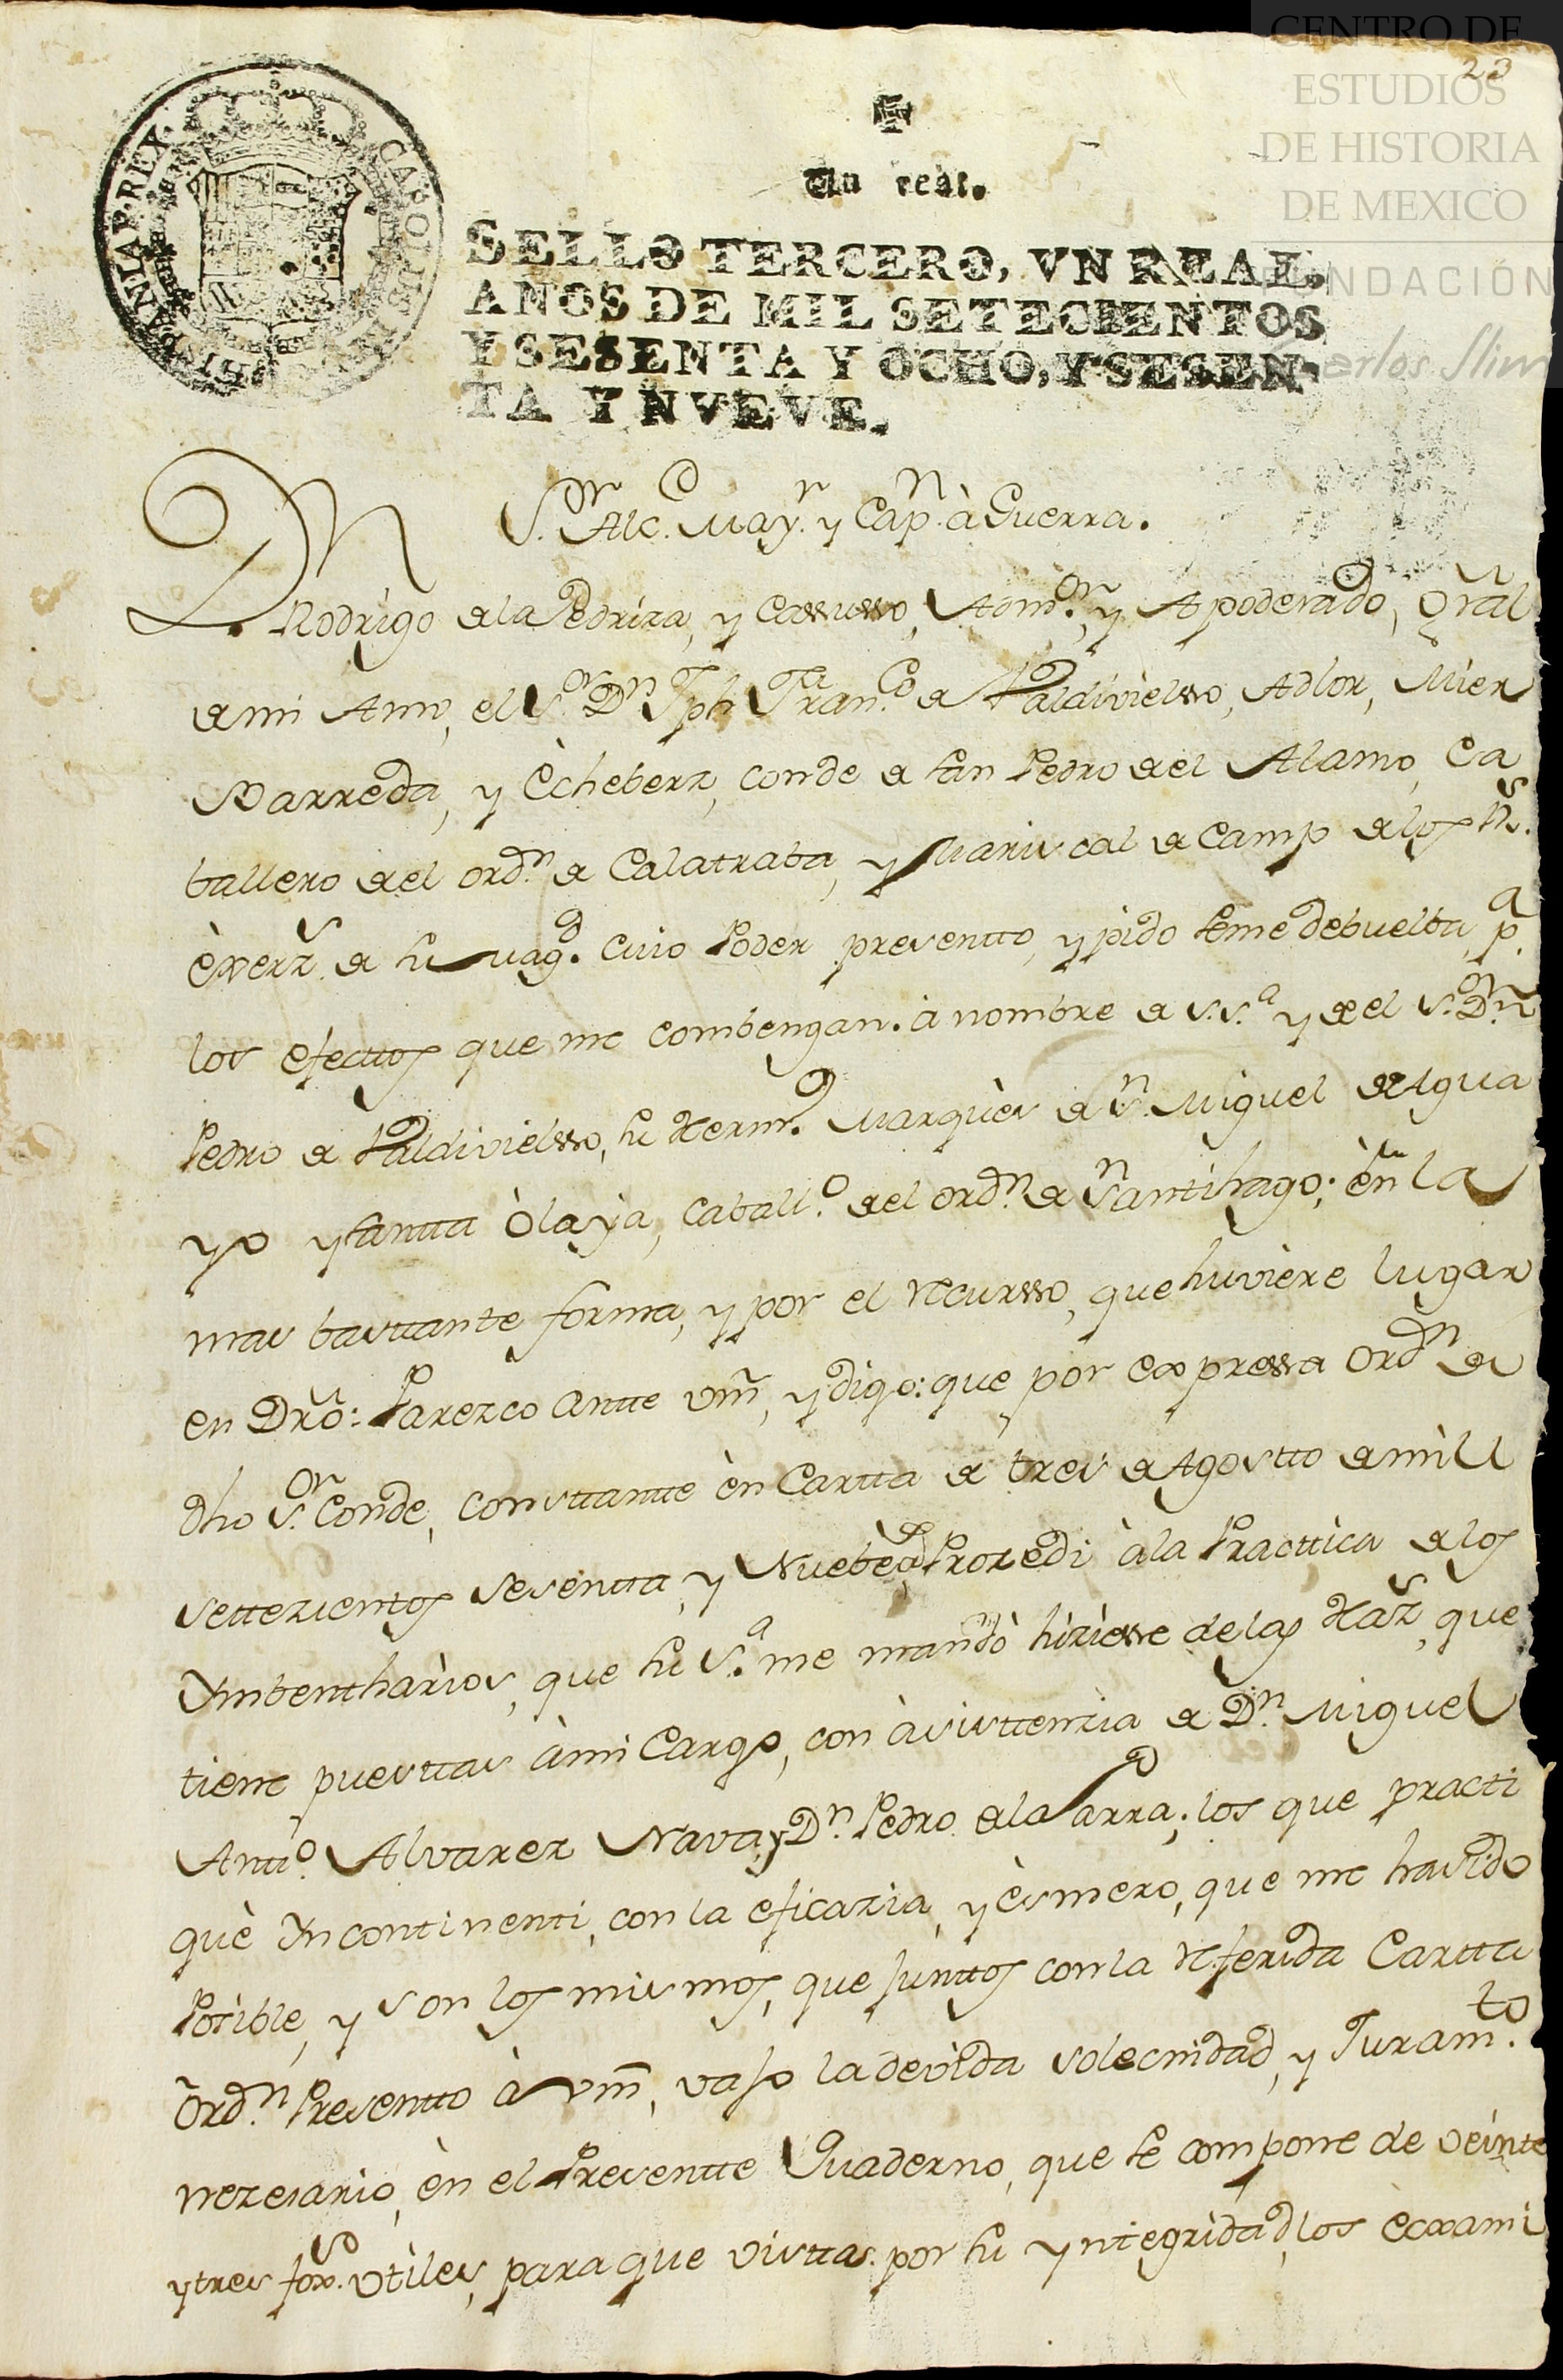 CENTRO DE
ESTUDIOS
DE HISTORIA
DE MEXICO
FUNDACIÓN
Carlos Slim
23
HISPANIAR. REX.
CAROLUS III
Un real.
SELLO TERCERO, VN REAL,
AÑOS DE MIL SETECIENTOS
Y SESENTA Y OCHO, Y SESEN-
TA Y NVEVE.
S.or Alc.e May.r y Cap.n à Guerra.
Dn. Rodrigo de la Pedriza, y Cassusso, Adm.or, y Apoderado, Gral
de mi Amo, el S.or D.n Jph Fran.co de Valdivielsso, Adlor, Mier
Barreda, y Echeberz, conde de San Pedro de el Alamo, Ca
ballero de el ord.n de Calatraba, y Mariscal de Camp de los Rs.
èxerz.s de su Mag.d Cuio Poder presentto, y pido seme debuelba p.a
los efecttos que me combengan. à nombre de S.S.a y de el S.or D.n
Pedro de Valdivielsso, su Herm.o Marquès de S.n Miguel de Agua
yo y santta Òlaya, Caball.o de el ord.n de Santihago; èn la
mas basttante forma, y por el recursso, que huviere lugar
en Drõ: Parezco antte Vm̃, y digo: que por expressa Ord.n de
dho S.or Conde, consttantte èn Cartta de tres de Agostto de mill
settezientos sesentta, y Nuebe, Prozedi à la Practtica de los
Ymbentharios, que su S.a me mandò hiziesse de las Haz.s, que
tiene puesttas à mi Cargo, con àsisttenzia de D.n Miguel
Antt.o Alvarez Nava, y D.n Pedro de la Parra; los que practi
què Yncontinenti, con la eficazia, y èsmero, que me ha sido
Posible, y son los mismos, que junttos con la referida Cartta
Ord.n Presentto à Vm̃, vajo la devida solecnidad, y Juram.to
nezesario, èn el Presentte Quaderno, que se compone de veinte
y tres fox.s vtiles, para que visttas por su yntegridad, los ecxami